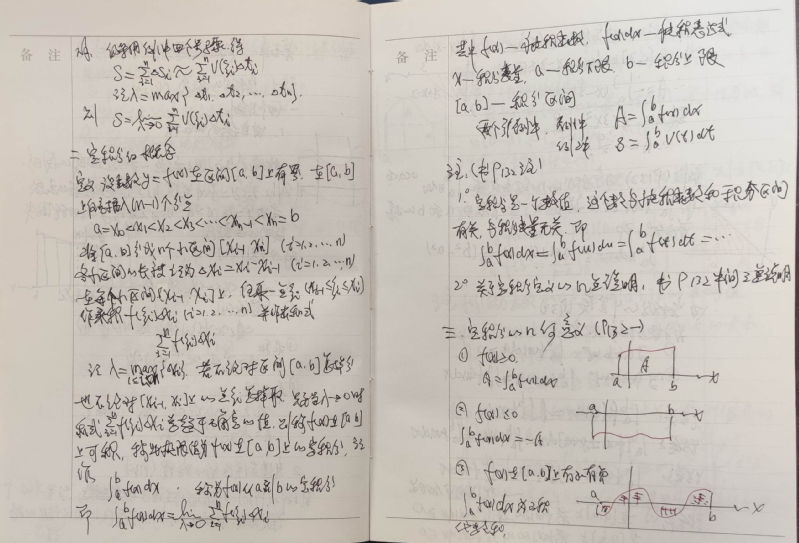 备注
S=∑_{i=1}^{n}ΔS_i≈∑_{i=1}^{n}V(ξ_i)Δt_i
记λ=max{Δt₁, Δt₂, …, Δtₙ}.
则 S=lim_{λ→0}∑_{i=1}^{n}V(ξ_i)Δt_i
二 定积分的概念
定义 设函数y=f(x)在区间[a,b]上有界, 在[a,b]
上任意插入(n-1)个分点
a=x₀<x₁<x₂<x₃<…<xₙ₋₁<xₙ=b
将[a,b]分成n个小区间[x_{i-1}, x_i] (i=1,2,…,n)
各小区间的长度记为Δx_i=x_i-x_{i-1} (i=1,2,…,n)
在每个小区间[x_{i-1}, x_i]上, 任取一点ξ_i (x_{i-1}≤ξ_i≤x_i)
作乘积f(ξ_i)Δx_i (i=1,2,…,n) 并作和式
∑_{i=1}^{n}f(ξ_i)Δx_i
记λ=max_{1≤i≤n}{Δx_i}, 若不论对区间[a,b]怎样分
也不论对[x_{i-1}, x_i]上的点ξ_i怎样取, 只要当λ→0时
和式∑_{i=1}^{n}f(ξ_i)Δx_i总趋于确定的值, 则称f(x)在[a,b]
上可积, 称此极限值为f(x)在[a,b]上的定积分, 记
作
∫_a^b f(x)dx 称为f(x)从a到b的定积分
即 ∫_a^b f(x)dx=lim_{λ→0}∑_{i=1}^{n}f(ξ_i)Δx_i
备注
其中f(x)—被积函数, f(x)dx—被积表达式
x—积分变量, a—积分下限 b—积分上限
[a,b]—积分区间
两个引例中, A=∫_a^b f(x)dx
S=∫_a^b V(t)dt
注: (书P132注)
1° 定积分是一个数值, 这个数与被积函数和积分区间
有关, 与积分变量无关, 即
∫_a^b f(x)dx=∫_a^b f(u)du=∫_a^b f(t)dt=…
2° 关于定积分定义的几点说明, 书P132
三. 定积分的几何意义 (P132-)
① f(x)≥0, A
A=∫_a^b f(x)dx a b x
② f(x)≤0 a b x
∫_a^b f(x)dx=-A
③ f(x)在[a,b]上有正有负
∫_a^b f(x)dx a b x